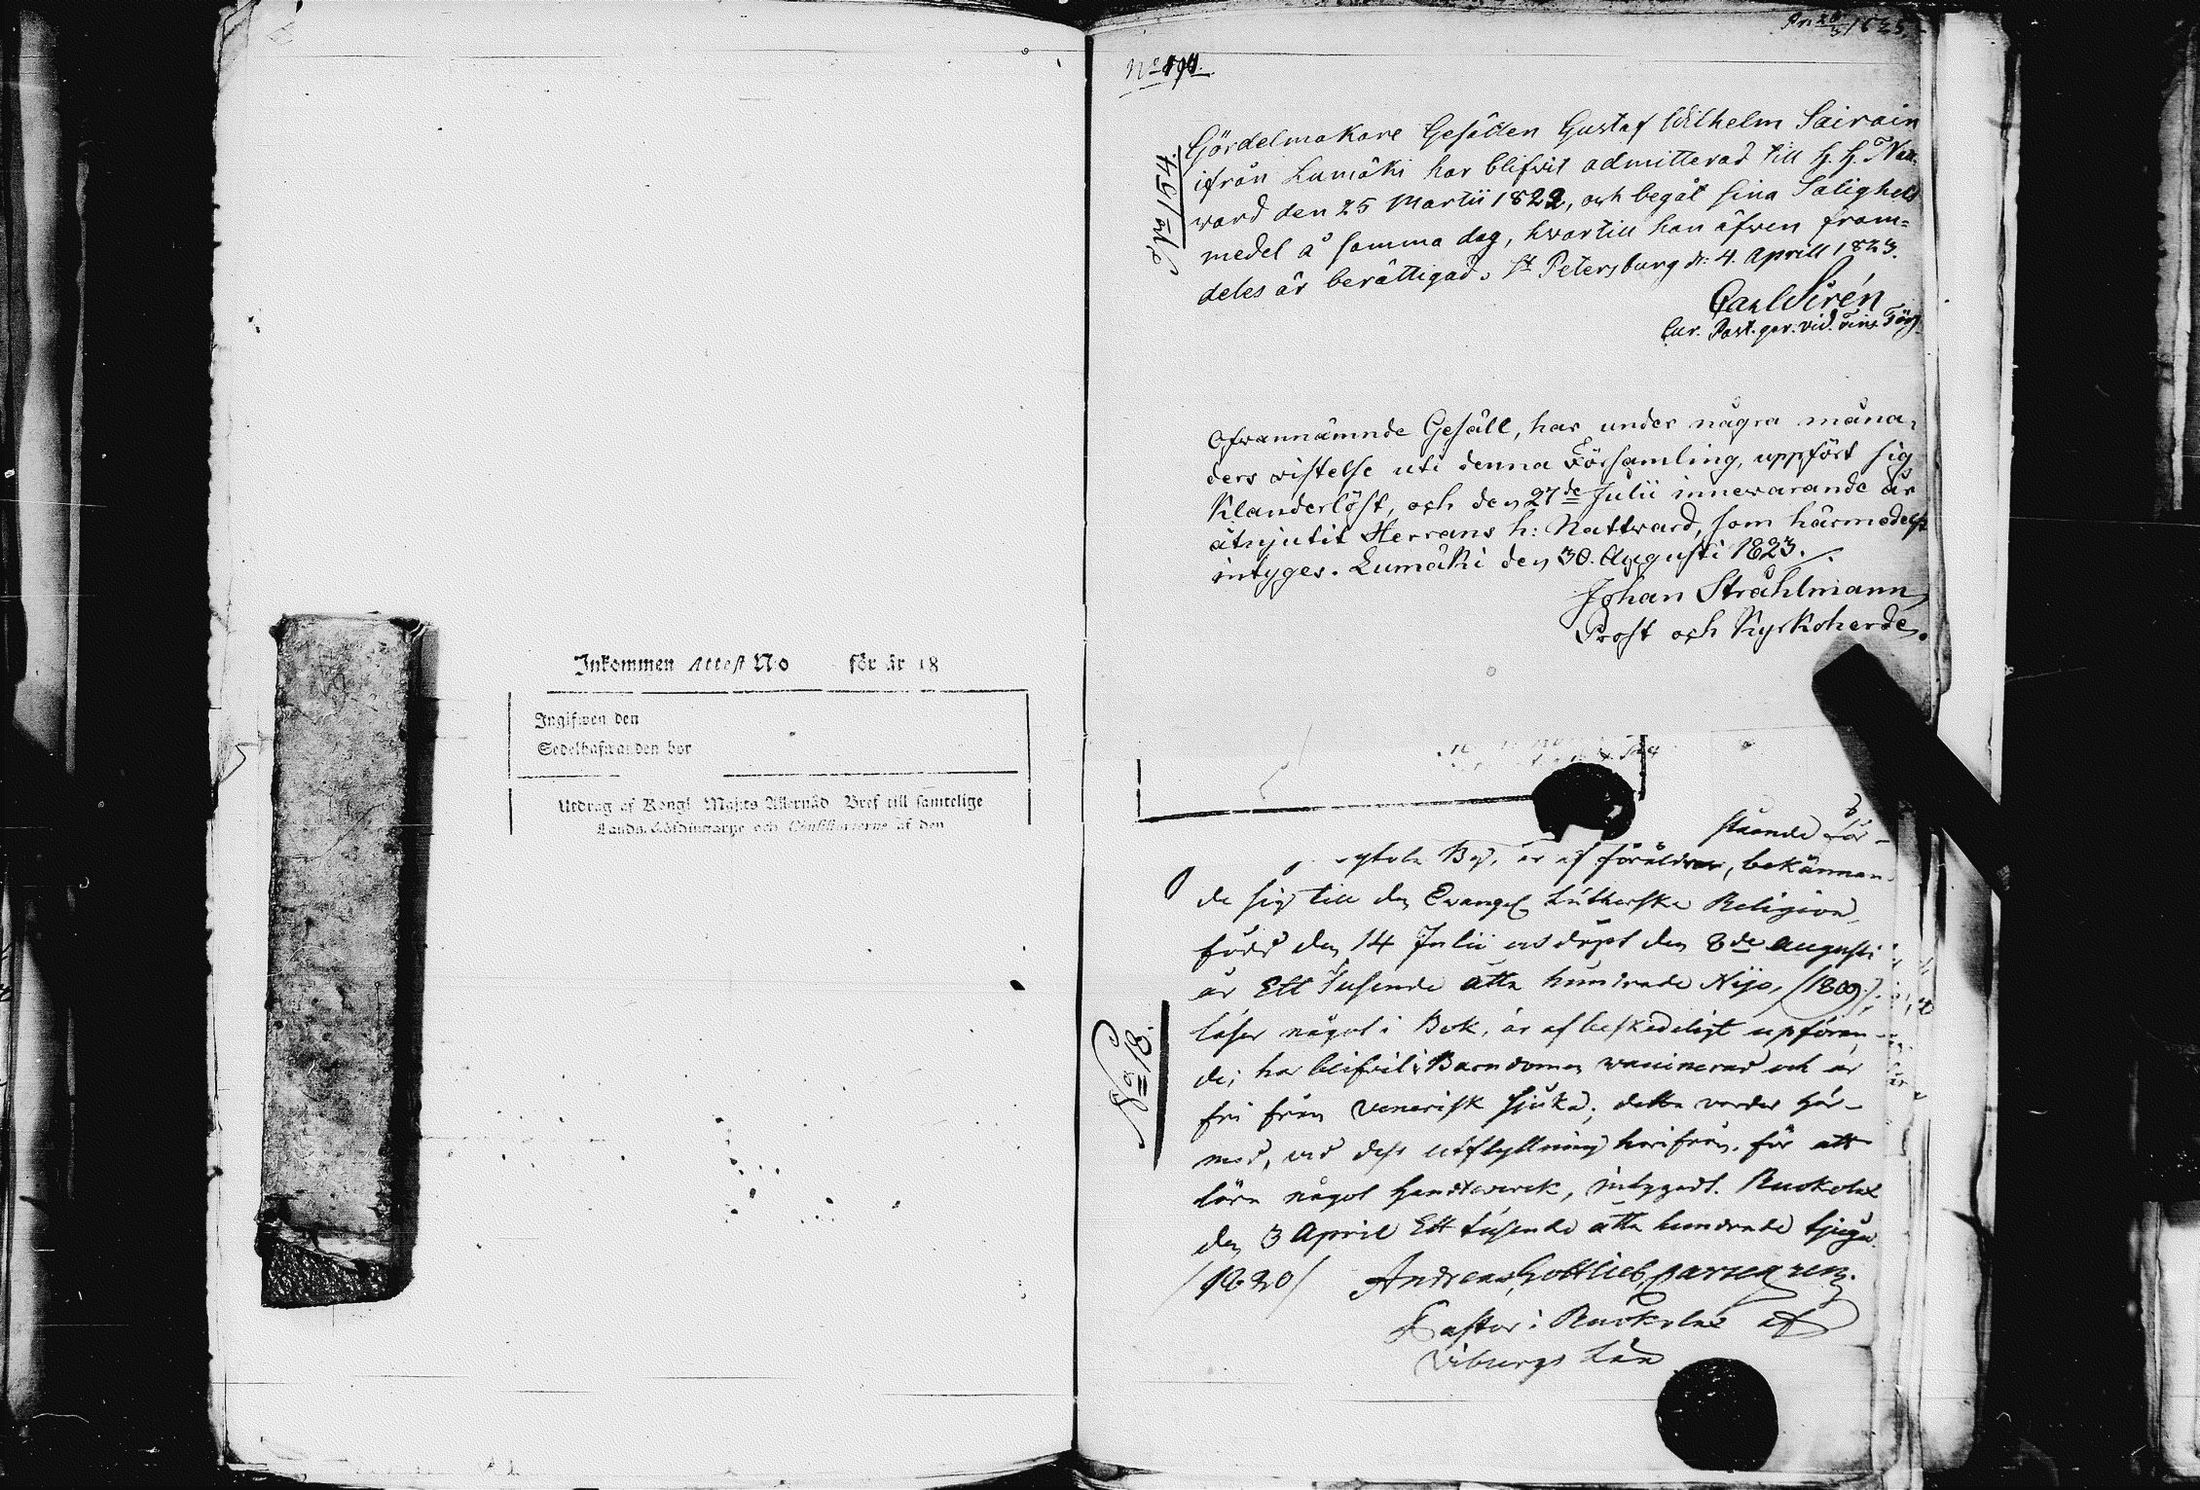 Inkommen Attest No för år 18
Ingifwen den
Sedelhafwanden bor
Utdrag af Kongl Majts Allernåd Bref till samtelige
Lands-Höfdingarne och Consistorierne af den
No
Gördelmakare Gesällen Gustaf Wilhelm Sairain
ifrån Lumäki har blifvit admitterad till H. H. Natt-
ward den 25 Martii 1822, och begåt sina Salighets
medel å samma dag, hwartill han äfwen fram-
deles är berättigad. St Petersburg d: 4. Aprill 1823.
Carl Sirén
Cur. Past. ger. vid. Fins Förs.
Ofwannämnde Gesäll, har under några måna-
ders vistelse uti denna Församling, uppfört sig
Klanderlöst, och den 27de Julii innewarande år
åtnjutit Herrans h: Nattward, som härmedelst
intyges. Lumäki den 30. Augusti 1823.
Johan Stråhlmann
Prost och Kyrkoherde.
stående för-
By, är af föräldrar, bekännan-
de sig till den Evangel Lutherska Religion,
född den 14 Julii och döpt den 8de Augusti
år Ett Tusende åtta hundrade Nijo, (1809);
läser något i Bok, är af beskedeligt uppföran-
de; har blifvit i Barndomen vaccinerad och är
fri från Venerisk sjuka; detta warder här-
med, vid dess utflyttning härifrån, för att
lära något Handtwerck, intygadt. Ruokolax
den 3 April Ett tusende åtta hundrade tjugu
/1820/ Andreas Gottlieb
Pastor i Ruokolax af
Viburgs Län
No 18.